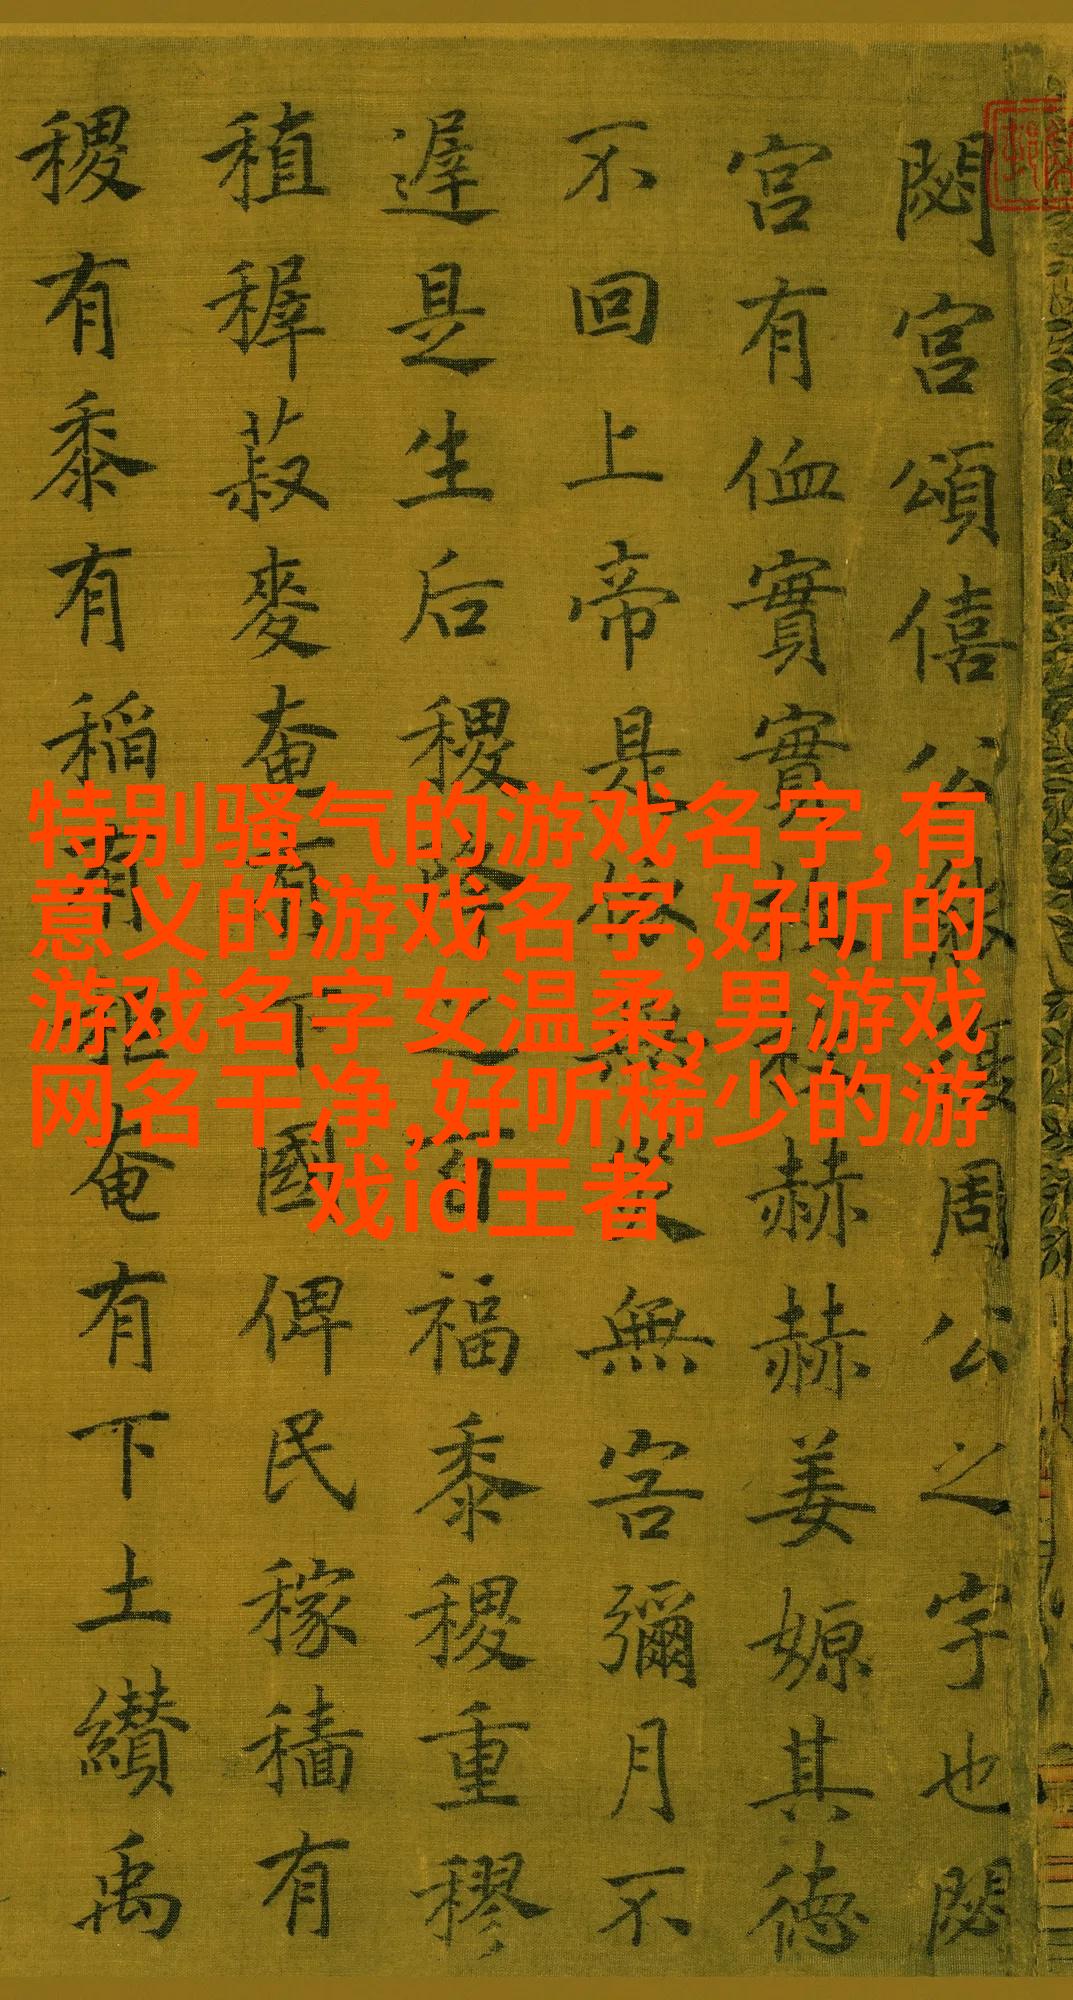 閟宮頌僖公能復周公之宇也閟
宮有侐實實枚枚赫赫姜嫄其德
不回上帝是依無災無害彌月不
遲是生后稷降之百福黍稷重穋
稙穉菽麥奄有下國俾民稼穡有
稷有黍有稲有秬奄有下土纘禹
特别骚气的游戏名字,有
意义的游戏名字,好听的
游戏名字女温柔,男游戏
网名干净,好听稀少的游
戏id王者